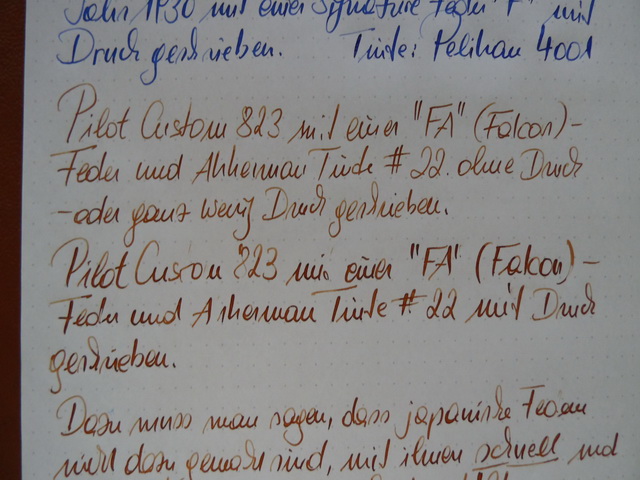 Jahr 1930 mit einer Signature Feder "F" mit
Druck geschrieben. Tinte: Pelikan 4001
Pilot Custom 823 mit einer "FA" (Falcon)-
Feder und Akkerman Tinte # 22 ohne Druck
-oder ganz wenig Druck geschrieben.
Pilot Custom 823 mit einer "FA" (Falcon)-
Feder und Akkerman Tinte # 22 mit Druck
geschrieben.
Dazu muss man sagen, dass japanische Federn
nicht dazu gemacht sind, mit ihnen schnell und